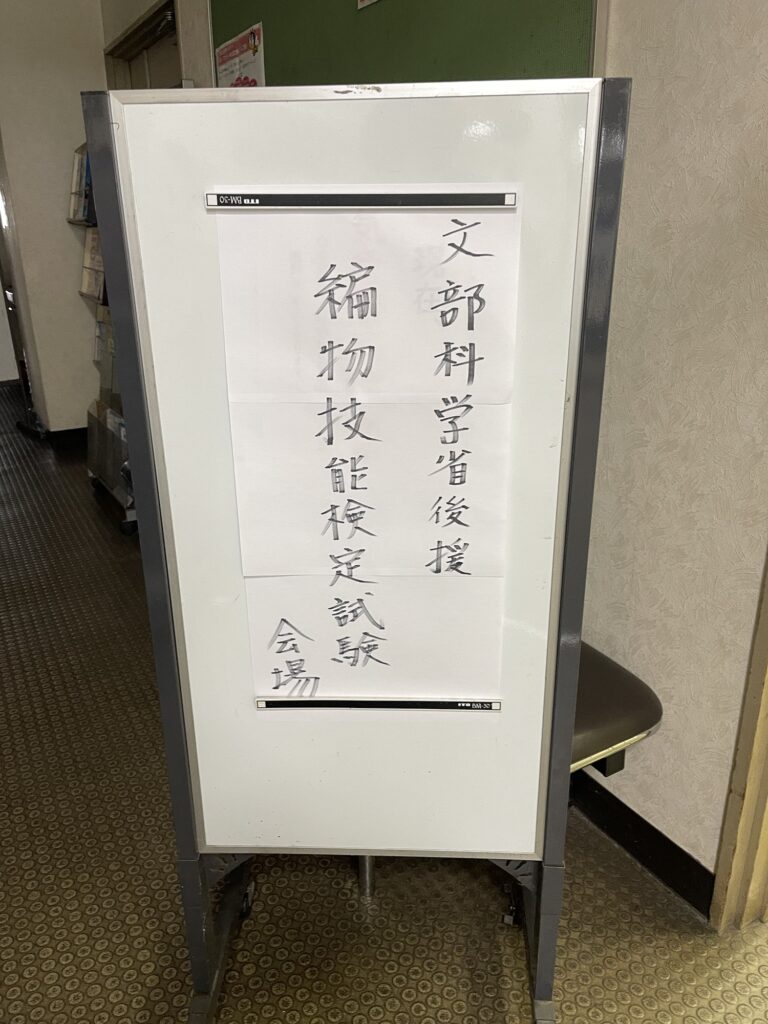 文部科学省後援
編物技能検定試験
会場
BM-50
BM-50